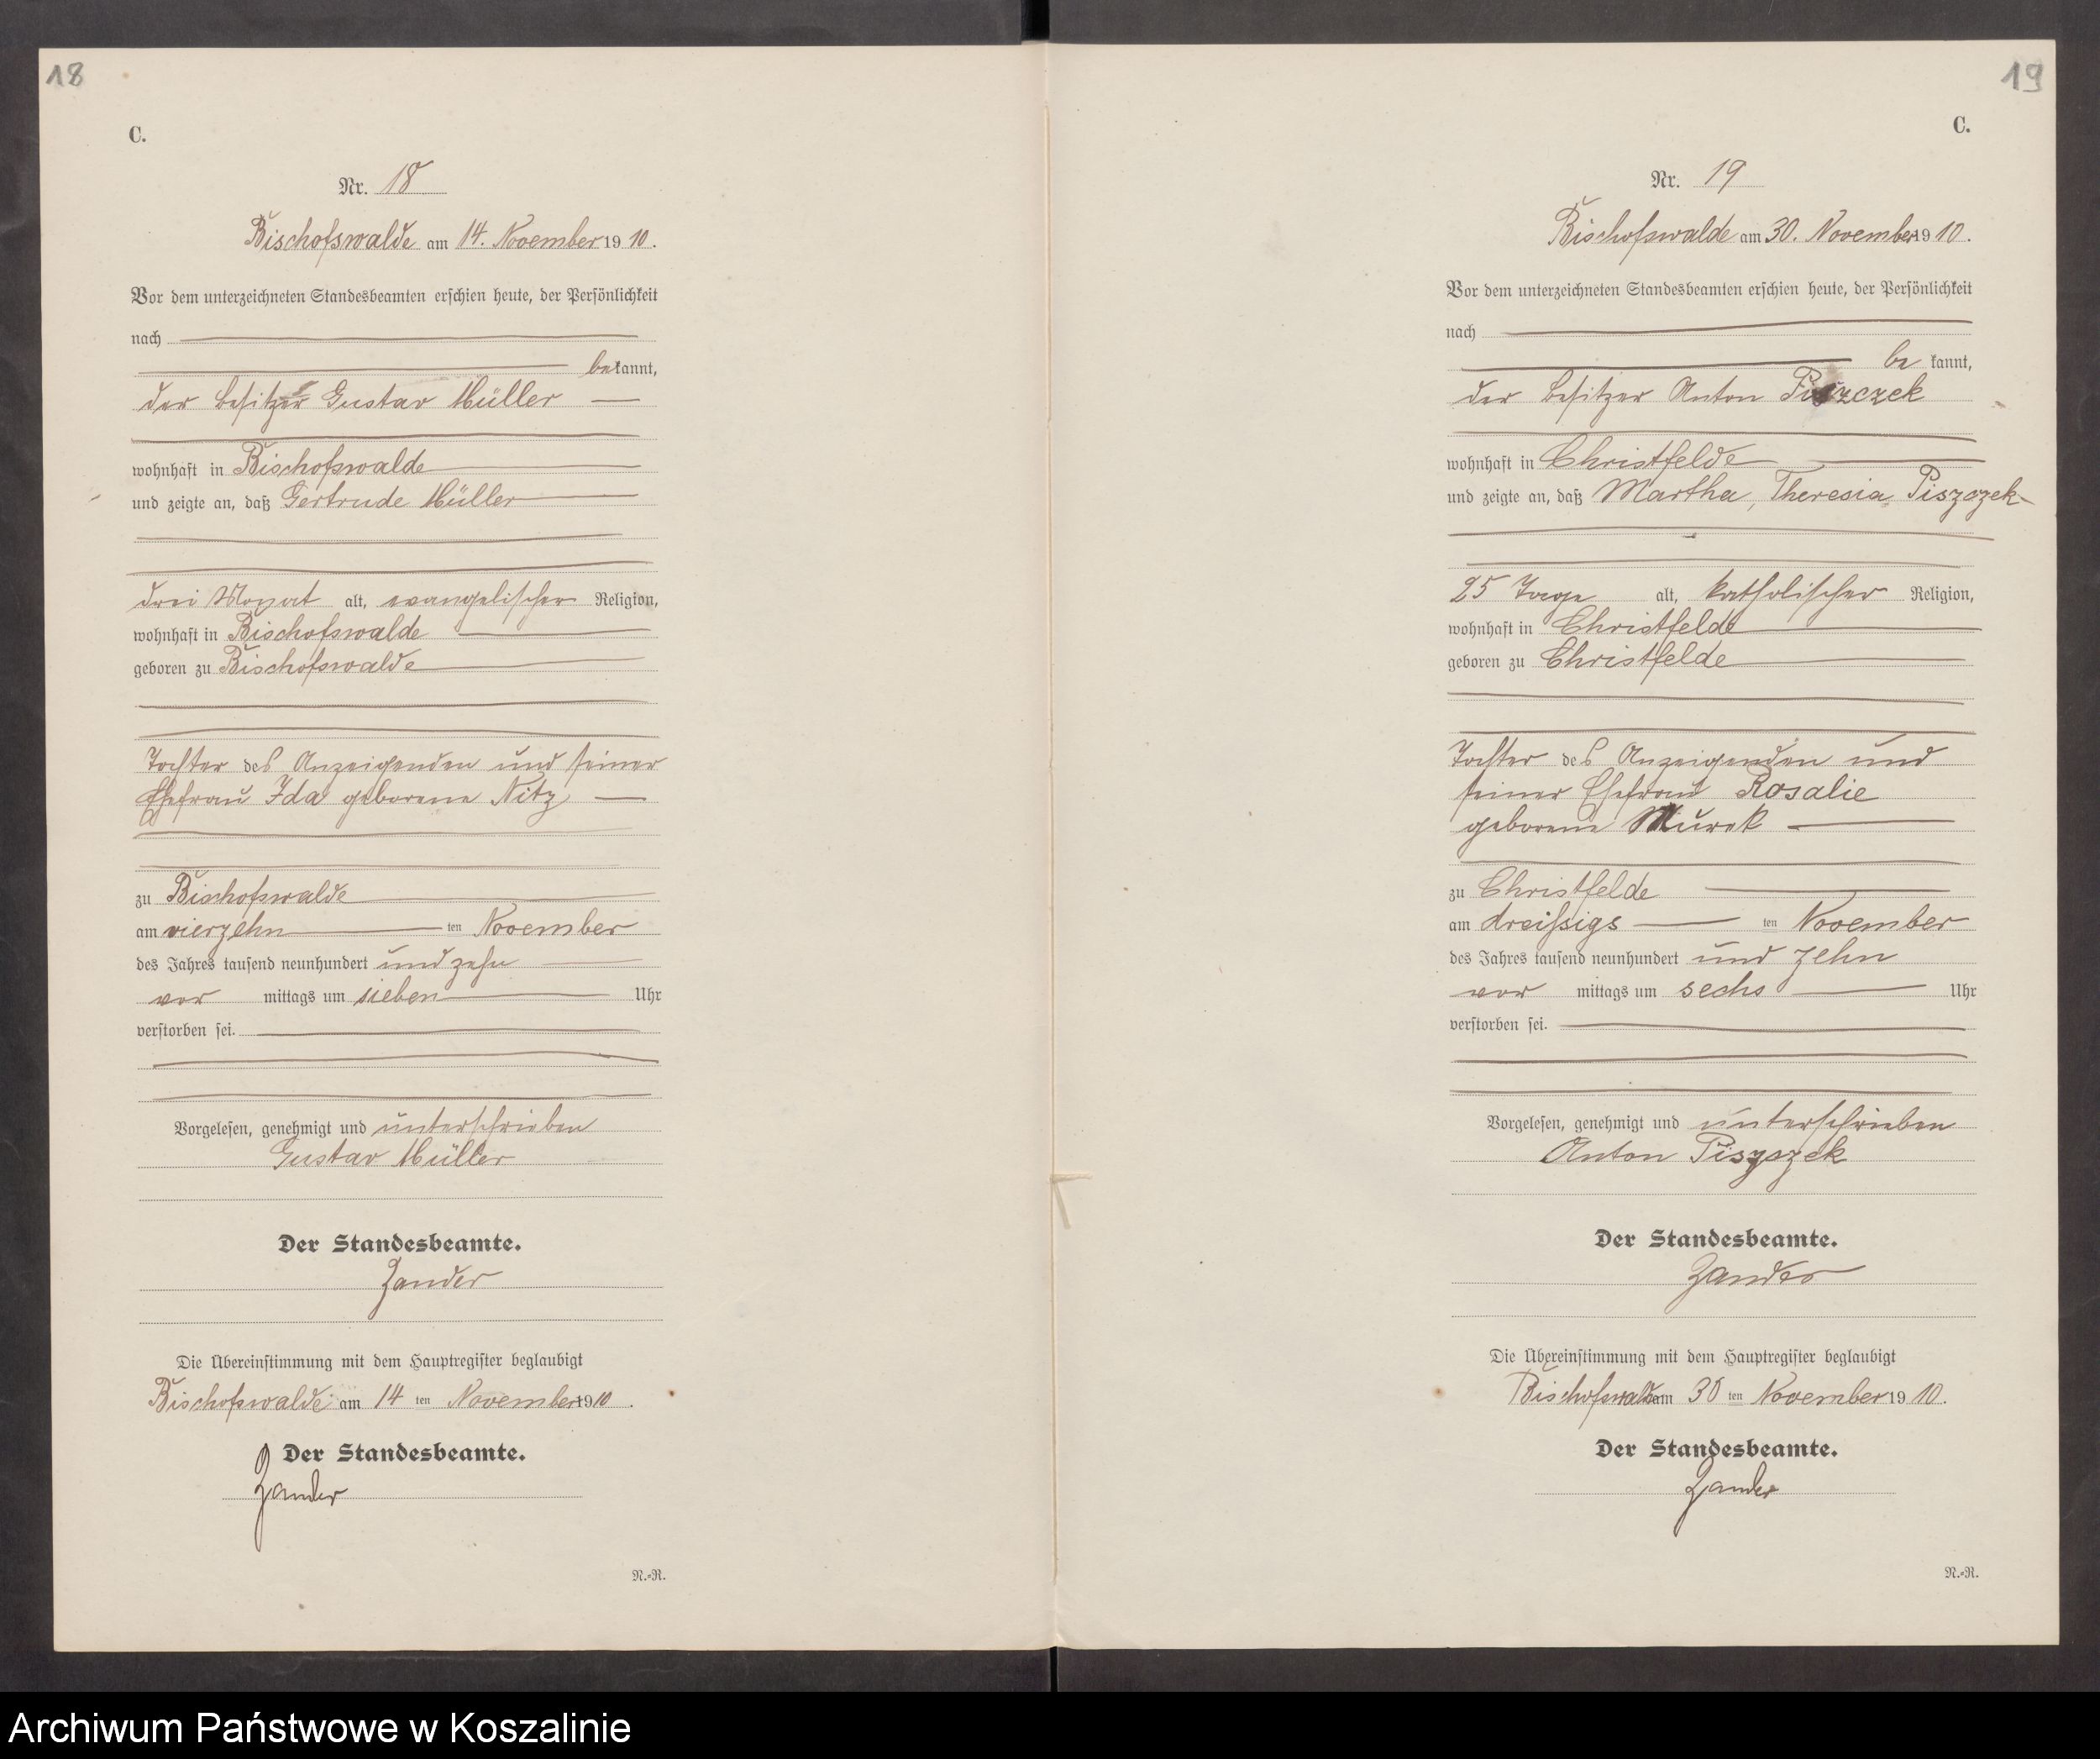 18
C.
Nr. 18
Bischofswalde am 14. November 1910.
Vor dem unterzeichneten Standesbeamten erschien heute, der Persönlichkeit
nach
bekannt,
der Besitzer Gustav Müller
wohnhaft in Bischofswalde
und zeigte an, daß Gertrude Müller
drei Monat alt, evangelischer Religion,
wohnhaft in Bischofswalde
geboren zu Bischofswalde
Tochter des Anzeigenden und seiner
Ehefrau Ida geborene Nitz
zu Bischofswalde
am vierzehn ten November
des Jahres tausend neunhundert und zehn
vor mittags um sieben Uhr
verstorben sei.
Vorgelesen, genehmigt und unterschrieben
Gustav Müller
Der Standesbeamte.
Zander
Die Übereinstimmung mit dem Hauptregister beglaubigt
Bischofswalde am 14 ten November 1910.
Der Standesbeamte.
Zander
N.-R.
19
C.
Nr. 19
Bischofswalde am 30. November 1910.
Vor dem unterzeichneten Standesbeamten erschien heute, der Persönlichkeit
nach
be kannt,
der Besitzer Anton Piszczek
wohnhaft in Christfelde
und zeigte an, daß Martha, Theresia Piszczek
25 Tage alt, katholischer Religion,
wohnhaft in Christfelde
geboren zu Christfelde
Tochter des Anzeigenden und
seiner Ehefrau Rosalie
geborene Murek
zu Christfelde
am dreißigs ten November
des Jahres tausend neunhundert und zehn
vor mittags um sechs Uhr
verstorben sei.
Vorgelesen, genehmigt und unterschrieben
Anton Piszczek
Der Standesbeamte.
Zander
Die Übereinstimmung mit dem Hauptregister beglaubigt
Bischofswalde am 30 ten November 1910.
Der Standesbeamte.
Zander
N.-R.
Archiwum Państwowe w Koszalinie